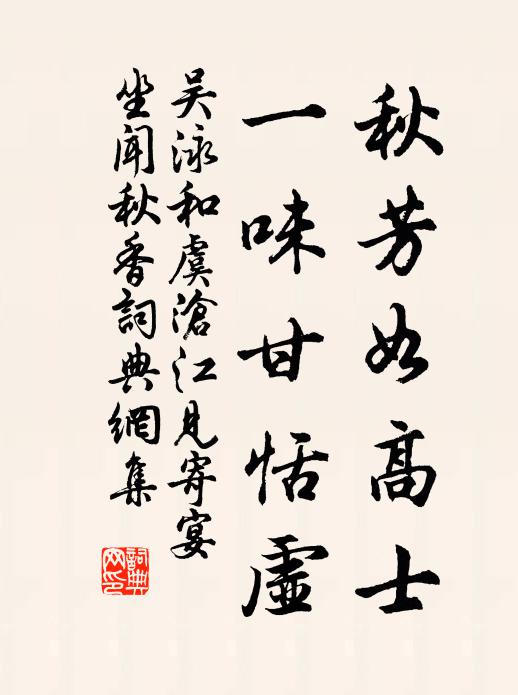 秋芳如高士
一味甘恬虛
吴泳和虞滄江見寄宴
坐闻秋香詞典網集
詞典
网印